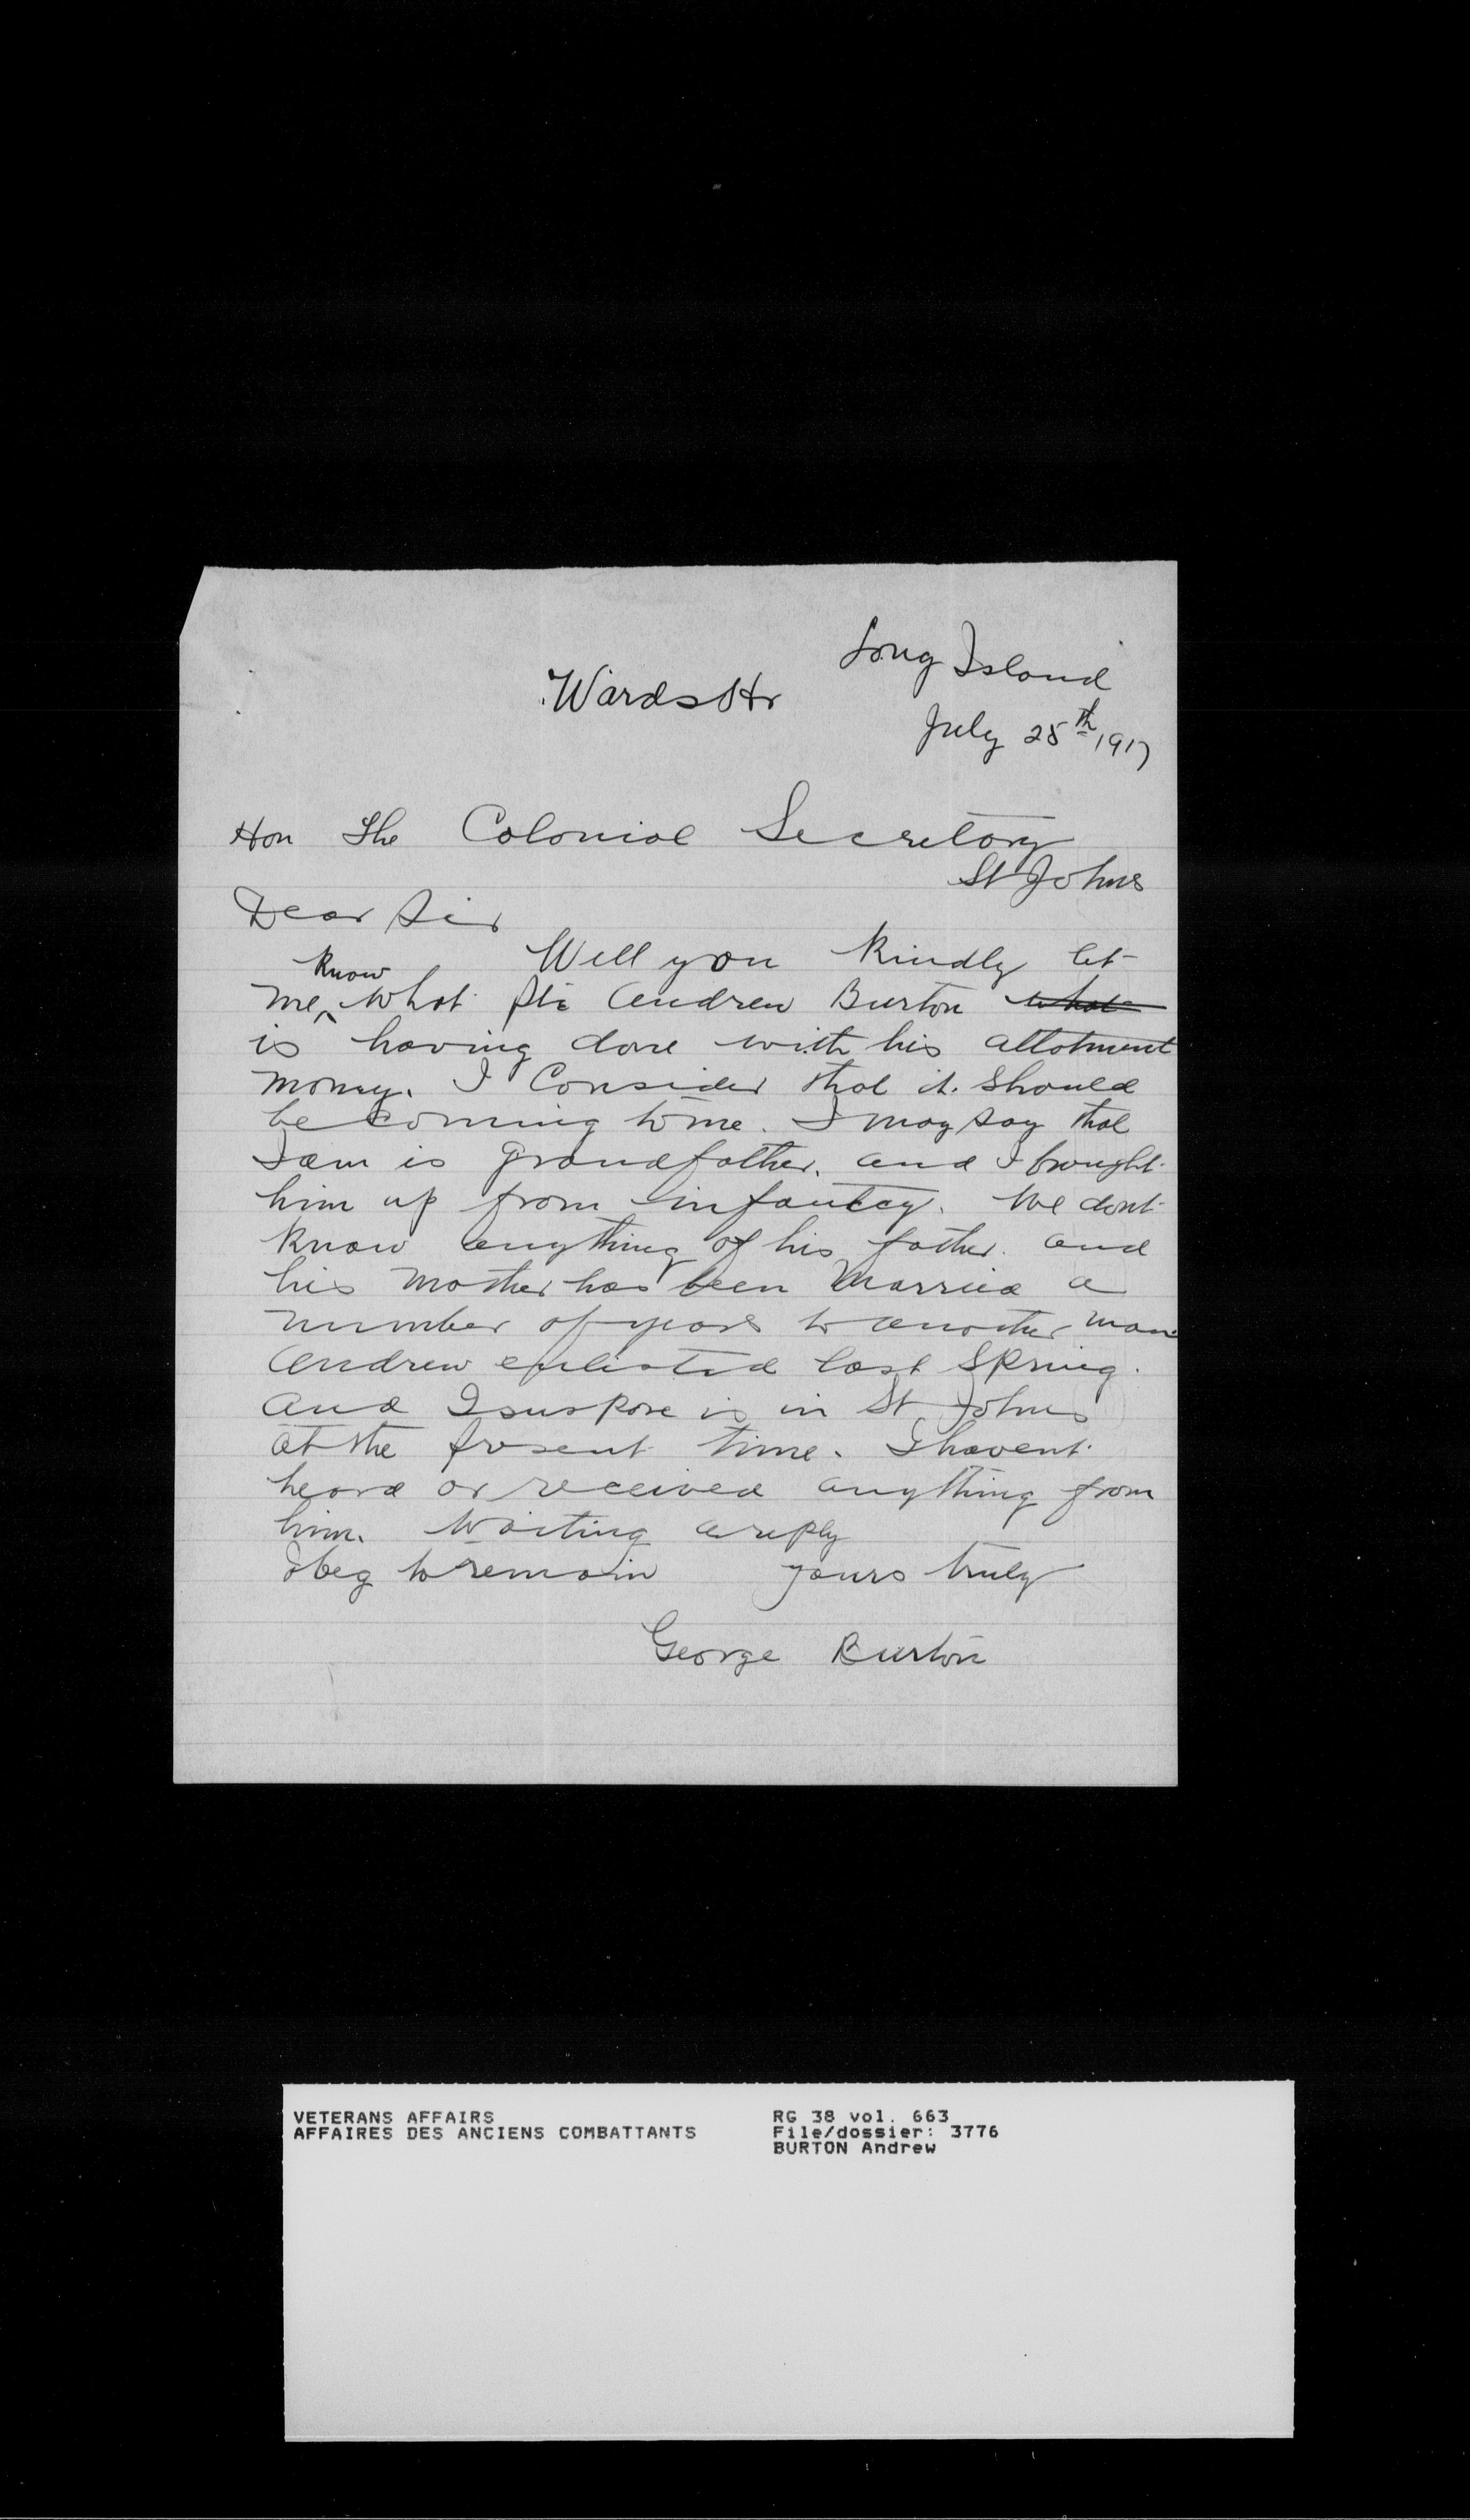 Long Island
Wards Hr
July 25th 1917
Hon The Colonial Secretary
St Johns
Dear Sir
Will you Kindly let
me know what Pte Andrew Burton what
is having done with his allotment
money. I Consider that it should
be coming to me. I may say that
I am is Grandfather. and I brought
him up from infantcy. We dont
Know anything of his father. and
his Mother has been Married a
number of years to another man
Andrew enlisted last Spring.
and I suspose is in St Johns
at the present time. I havent
heard or received anything from
him. Waiting a reply
I beg to remain yours truly
George Burton
VETERANS AFFAIRS
AFFAIRES DES ANCIENS COMBATTANTS
RG 38 vol. 663
File/dossier: 3776
BURTON Andrew